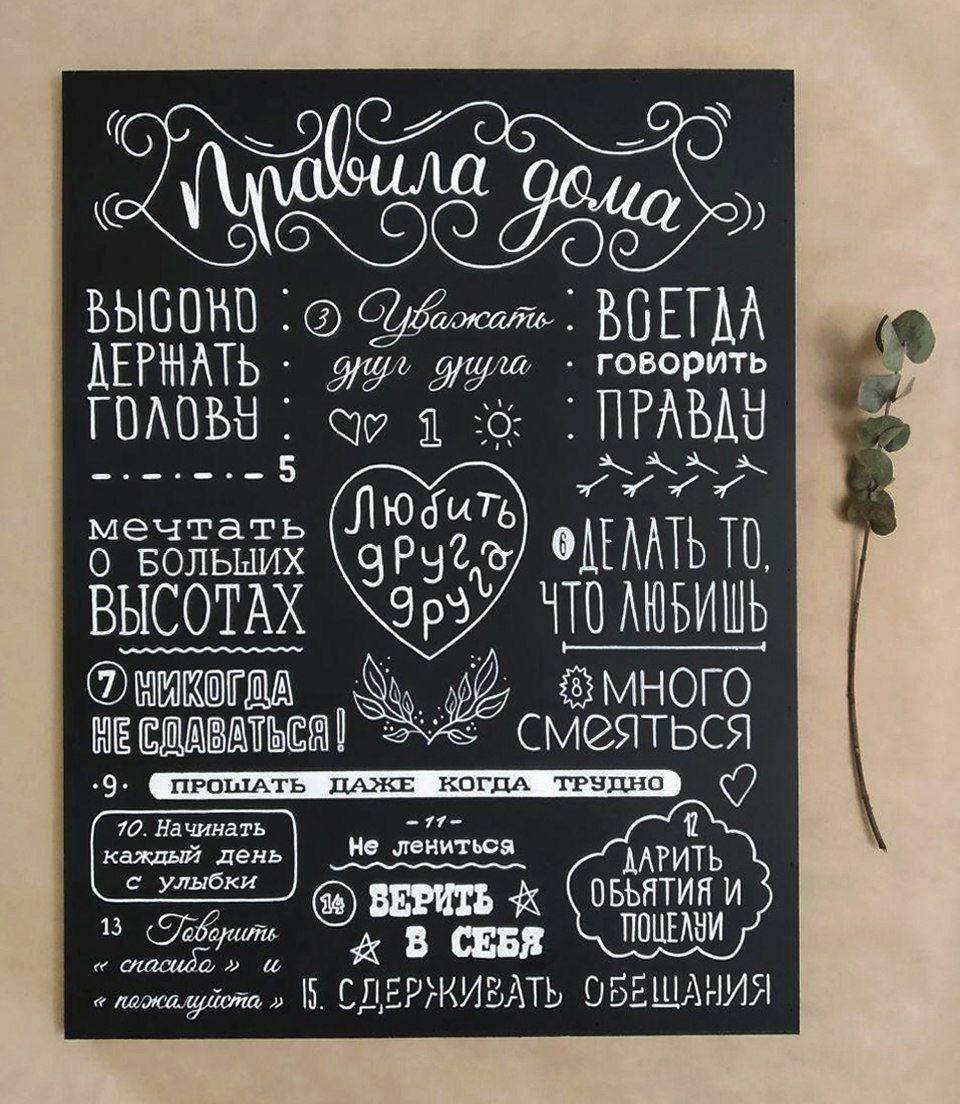 Правила дома
ВЫСОКО
ДЕРЖАТЬ
ГОЛОВУ
3 Уважать
друг друга
1
ВСЕГДА
говорить
ПРАВДУ
5
мечтать
О БОЛЬШИХ
ВЫСОТАХ
Любить
друг
друга
6 ДЕЛАТЬ ТО,
ЧТО ЛЮБИШЬ
7 НИКОГДА
НЕ СДАВАТЬСЯ!
8 МНОГО
СМЕЯТЬСЯ
·9· ПРОШАТЬ ДАЖЕ КОГДА ТРУДНО
10. Начинать
каждый день
с улыбки
-11-
Не лениться
12
ДАРИТЬ
ОБЬЯТИЯ И
ПОЦЕЛУИ
13 Говорить
«спасибо» и
«пожалуйста»
14 ВЕРИТЬ
В СЕБЯ
15. СДЕРЖИВАТЬ ОБЕЩАНИЯ